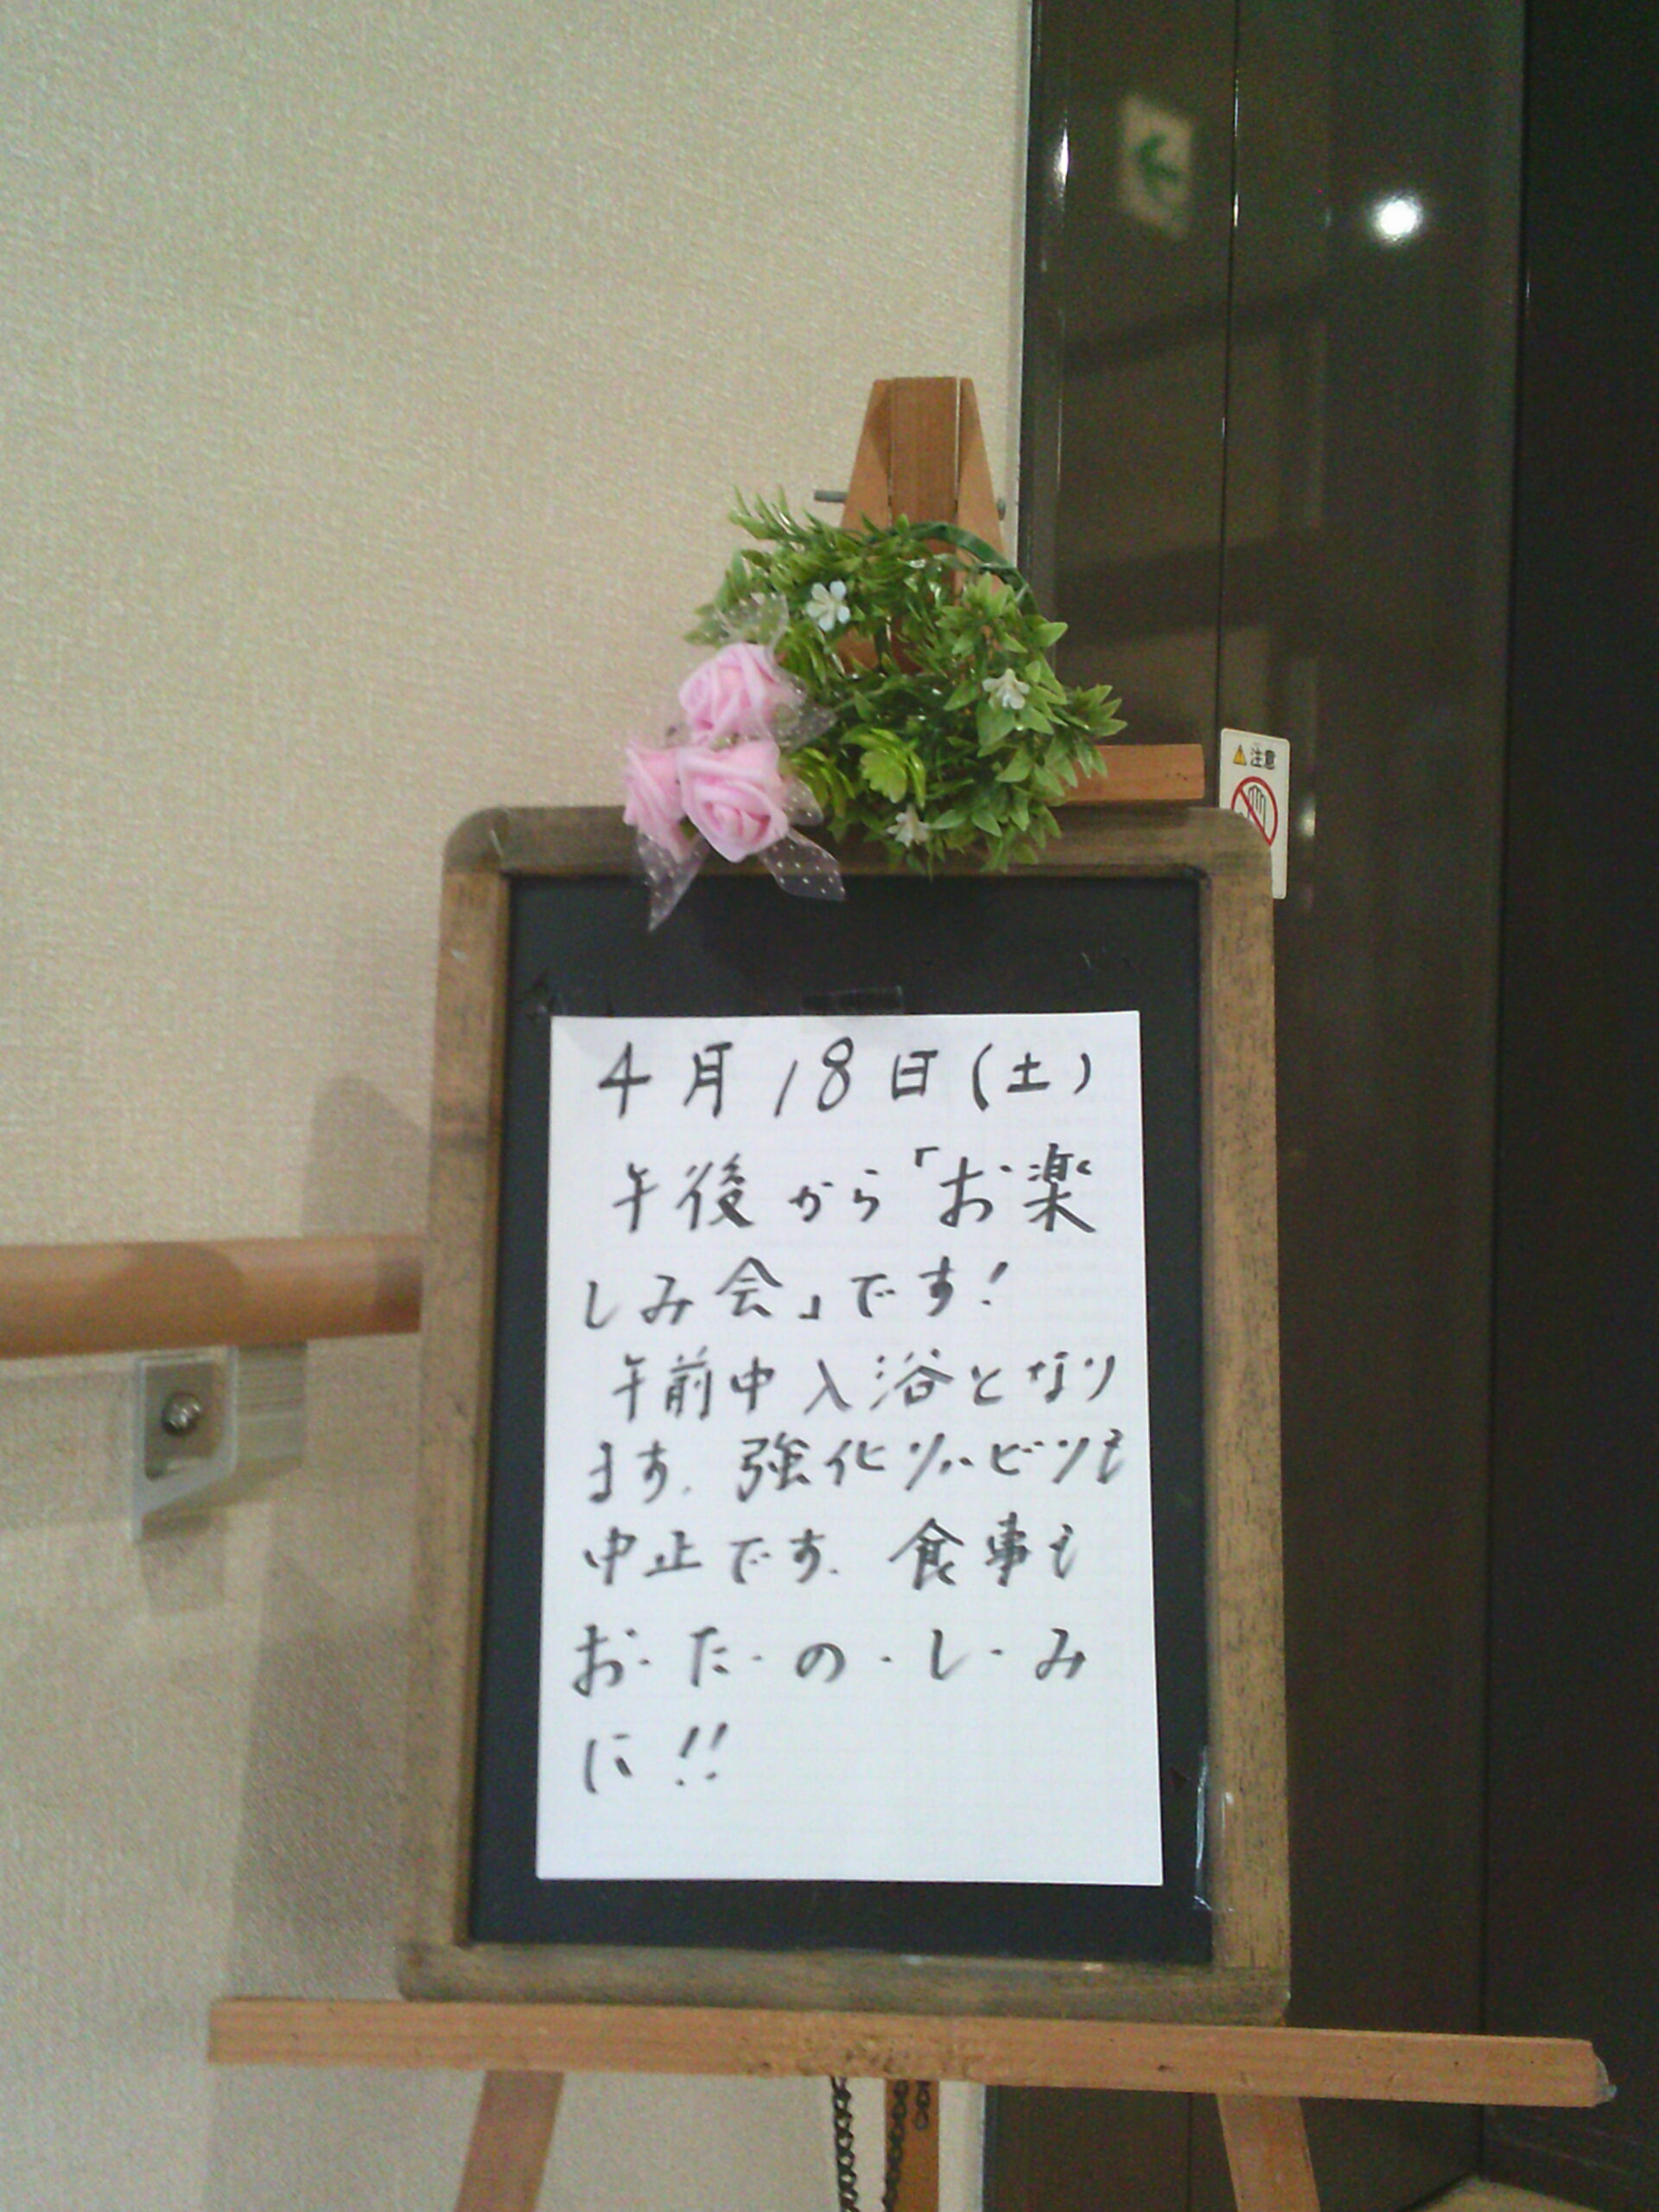 注意
4月18日(土)
午後から「お楽
しみ会」です！
午前中入浴となり
ます。強化リハビリも
中止です。食事も
お・た・の・し・み
に！！